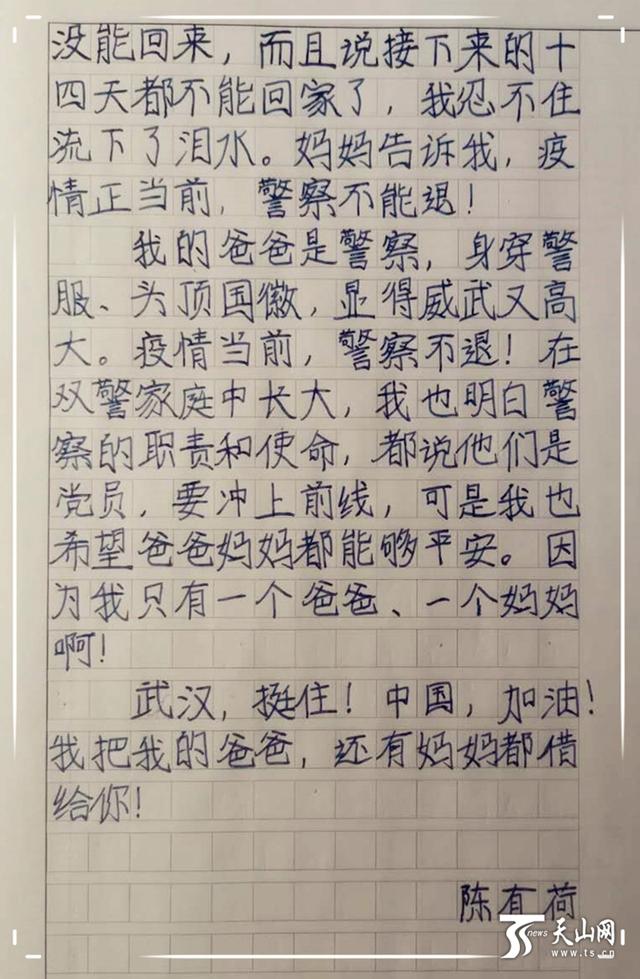 没能回来，而且说接下来的十
四天都不能回家了，我忍不住
流下了泪水。妈妈告诉我，疫
情正当前，警察不能退！
我的爸爸是警察，身穿警
服、头顶国徽，显得威武又高
大。疫情当前，警察不退！在
双警家庭中长大，我也明白警
察的职责和使命，都说他们是
党员，要冲上前线，可是我也
希望爸爸妈妈都能够平安。因
为我只有一个爸爸、一个妈妈
啊！
武汉，挺住！中国，加油！
我把我的爸爸，还有妈妈都借
给你！
陈有荷
TS news 天山网
www.ts.cn